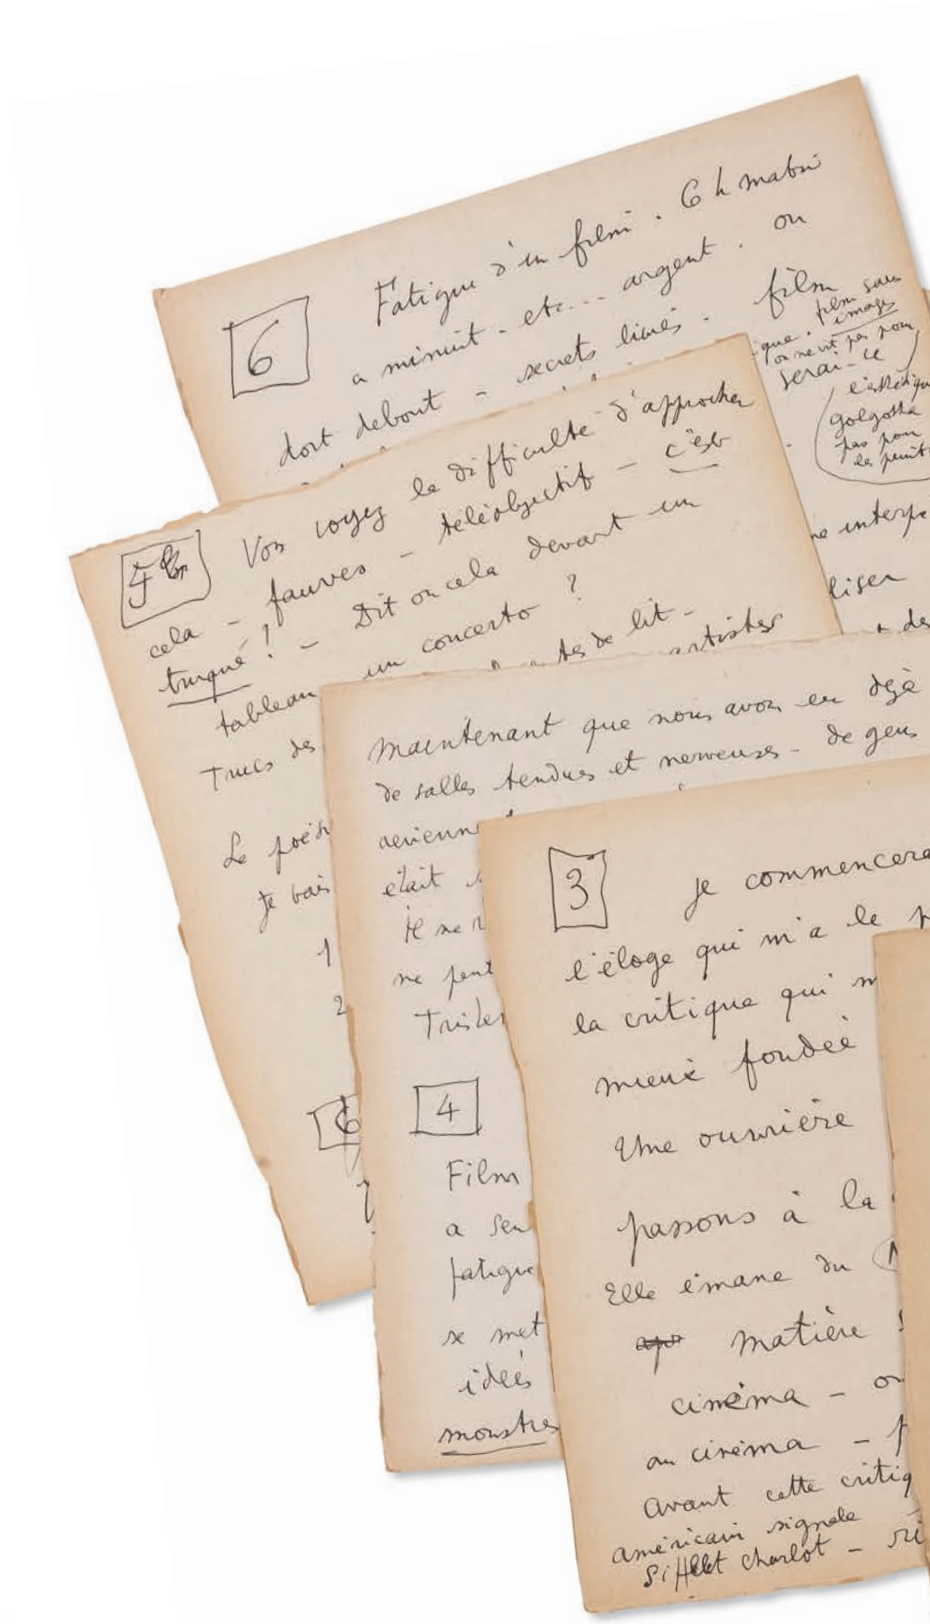 6
Fatigue d'un film. 6 h matin
a minuit - etc... argent. on
dort debout - secrets livrés. film
film sans
images
on ne vit pas pour
serai-ce
l'esthétique
golgotha
pas pour
ne interp
liser
5 bis
Vous voyez la difficulté d'approcher
cela - fauves - téléobjectif - c'est
truqué! - Dit on cela devant un
tableau un concerto ?
Trucs des
de lit -
artistes
Le
Je vais
1
2
6
maintenant que nous avons eu déjà
de salles tendues et nerveuses - de gens
aerienn
était
ne peut
Tristan
4
Film
a
fatigue
se met
idées
monstres
3
Je commencera
l'éloge qui m'a le
la critique qui m
mieux fondée
Une ouvrière
passons à la
Elle émane du
matière
cinéma - on
au cinéma -
Avant cette critiq
américain signale
Sifflet charlot -